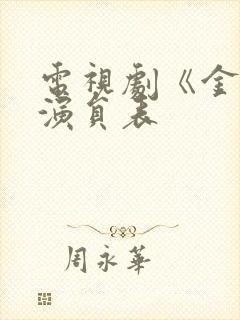 電視劇《金
演員表
周永華